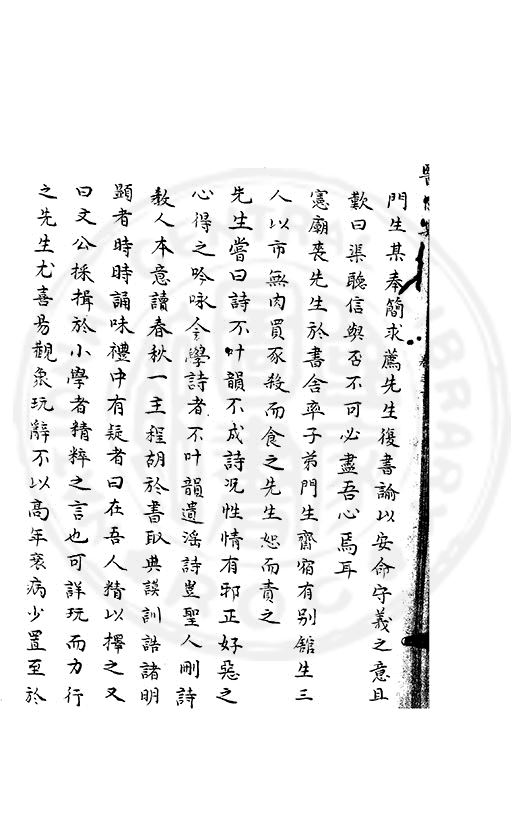 門生某奉簡求薦先生復書諭以安命守義之意且
歎曰渠聽信與否不可必盡吾心焉耳
憲廟喪先生於書舍率子弟門生齋宿有别舘生三
人以市無肉買豕殺而食之先生怒而責之
先生嘗曰詩不叶韻不成詩况性情有邪正好惡之
心得之吟咏今學詩者不叶韻遺滛詩豈聖人刪詩
教人本意讀春秋一主程胡於書取典謨訓誥諸明
顕者時時誦味禮中有疑者曰在吾人精以擇之又
曰文公採揖於小學者精粹之言也可詳玩而力行
之先生尤喜易觀象玩辭不以高年衰病少置至於